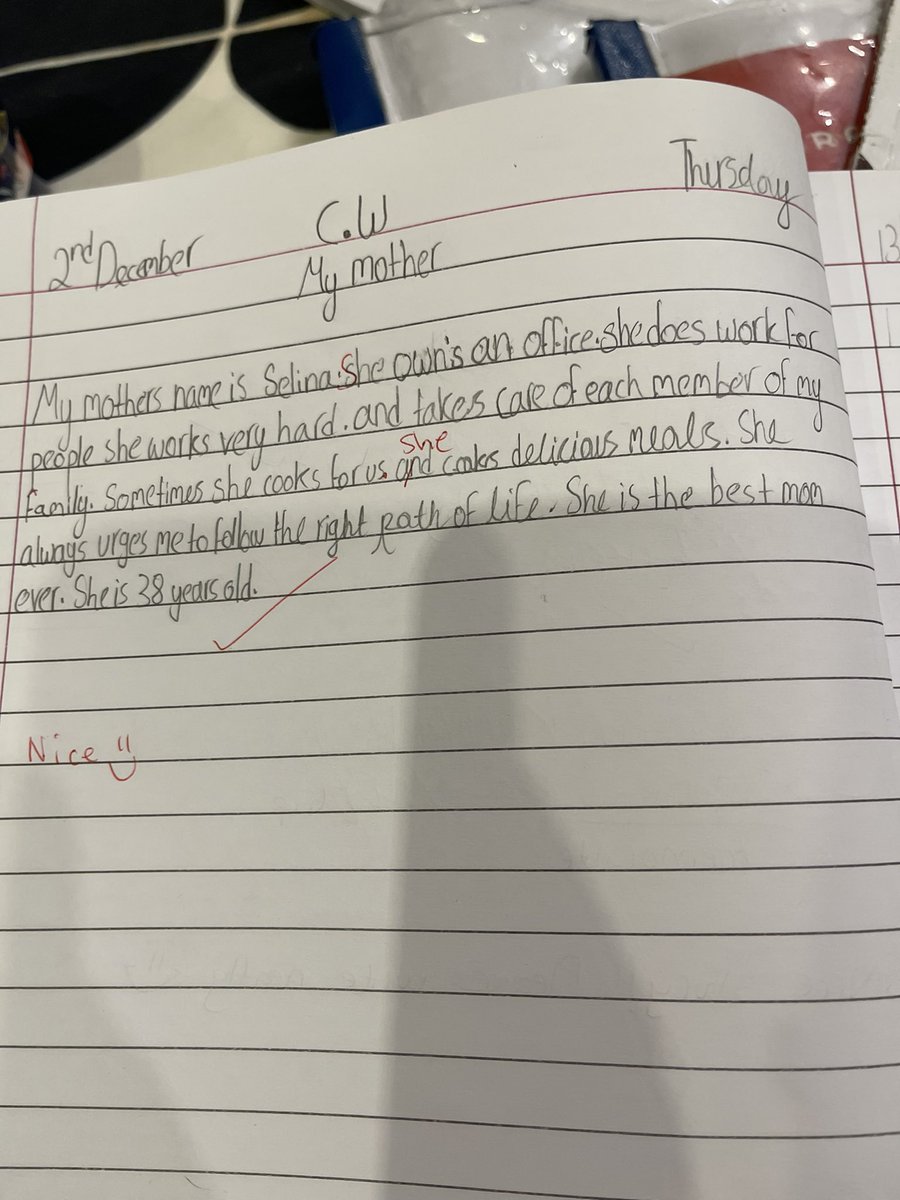 Thursday
C.W
2nd December
My mother
My mothers name is Selina. She own's an office. she does work for
people she works very hard. and takes care of each member of my
family. Sometimes she cooks for us. and she cooks delicious meals. She
always urges me to follow the right path of life. She is the best mom
ever. She is 38 years old.
Nice
13